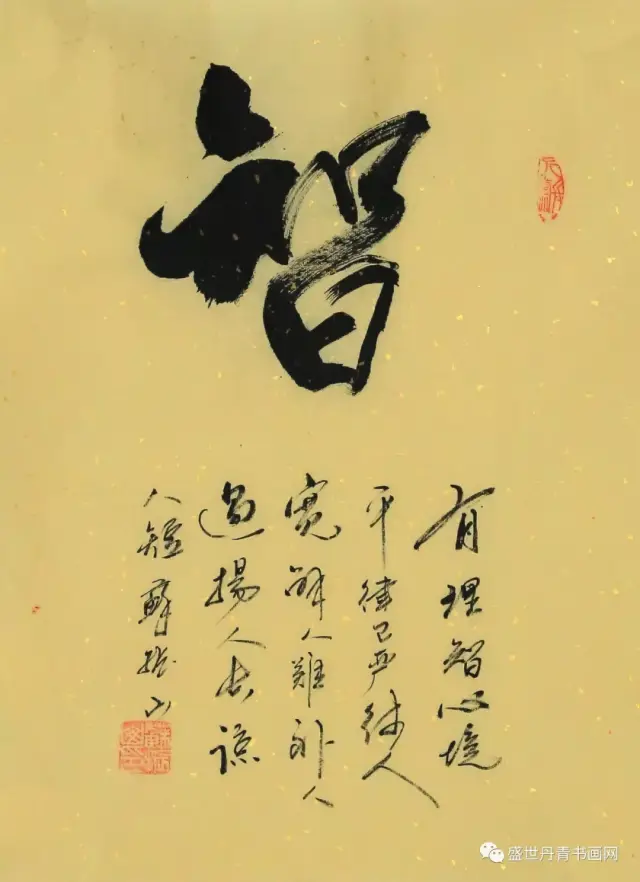 智
有理智心境
平律己严待人
宽解人難补人
過揚人长谅
人短蘇山
盛世丹青书画网